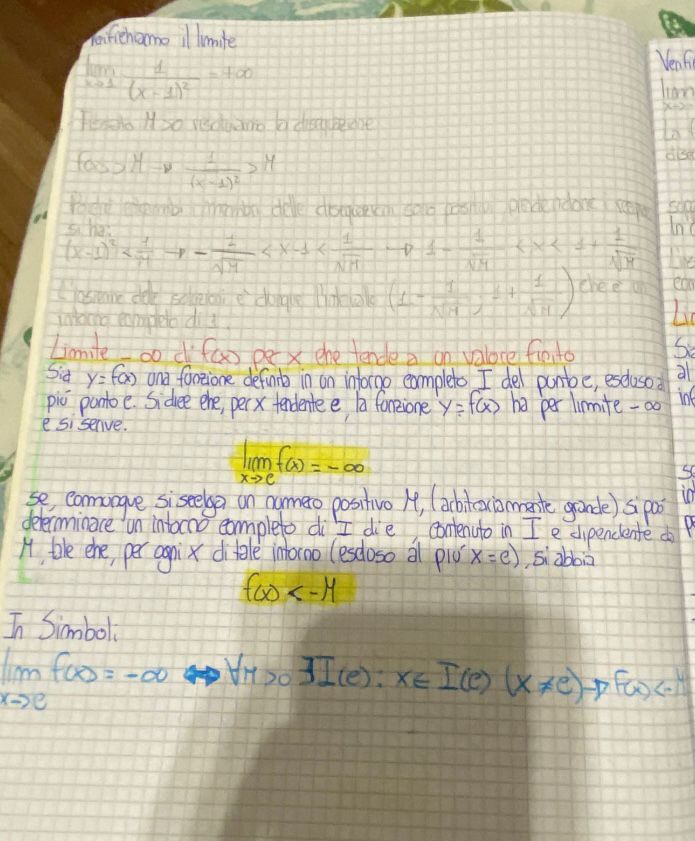 Verifichiamo il limite
lim x→1 1/(x-1)² = +∞
Fissato M>0 risolviamo la disequazione
f(x)>M → 1/(x-1)² > M
Poiché entrambi i membri delle disequazioni sono positivi prendendone i
si ha:
(x-1)² < 1/M → -1/√M < x-1 < 1/√M → 1 - 1/√M < x < 1 + 1/√M
L'insieme delle soluzioni è dunque l'intervallo (1 - 1/√M, 1 + 1/√M) che è un
intorno completo di 1.
Limite -∞ di f(x) per x che tende a un valore finito
Sia y=f(x) una funzione definita in un intorno completo I del punto c, escluso al
più punto c. Si dice che, per x tendente c, la funzione y=f(x) ha per limite -∞
e si scrive.
lim x→c f(x) = -∞
se, comunque si scelga un numero positivo M, (arbitrariamente grande) si può
determinare un intorno completo di I di c, contenuto in I e dipendente da
M, tale che, per ogni x di tale intorno (escluso al più x=c), si abbia
f(x) < -M
In Simboli
lim x→c f(x) = -∞ ⇔ ∀M>0 ∃I(c): x∈I(c) (x≠c) → f(x)<-M
lim
Li
al